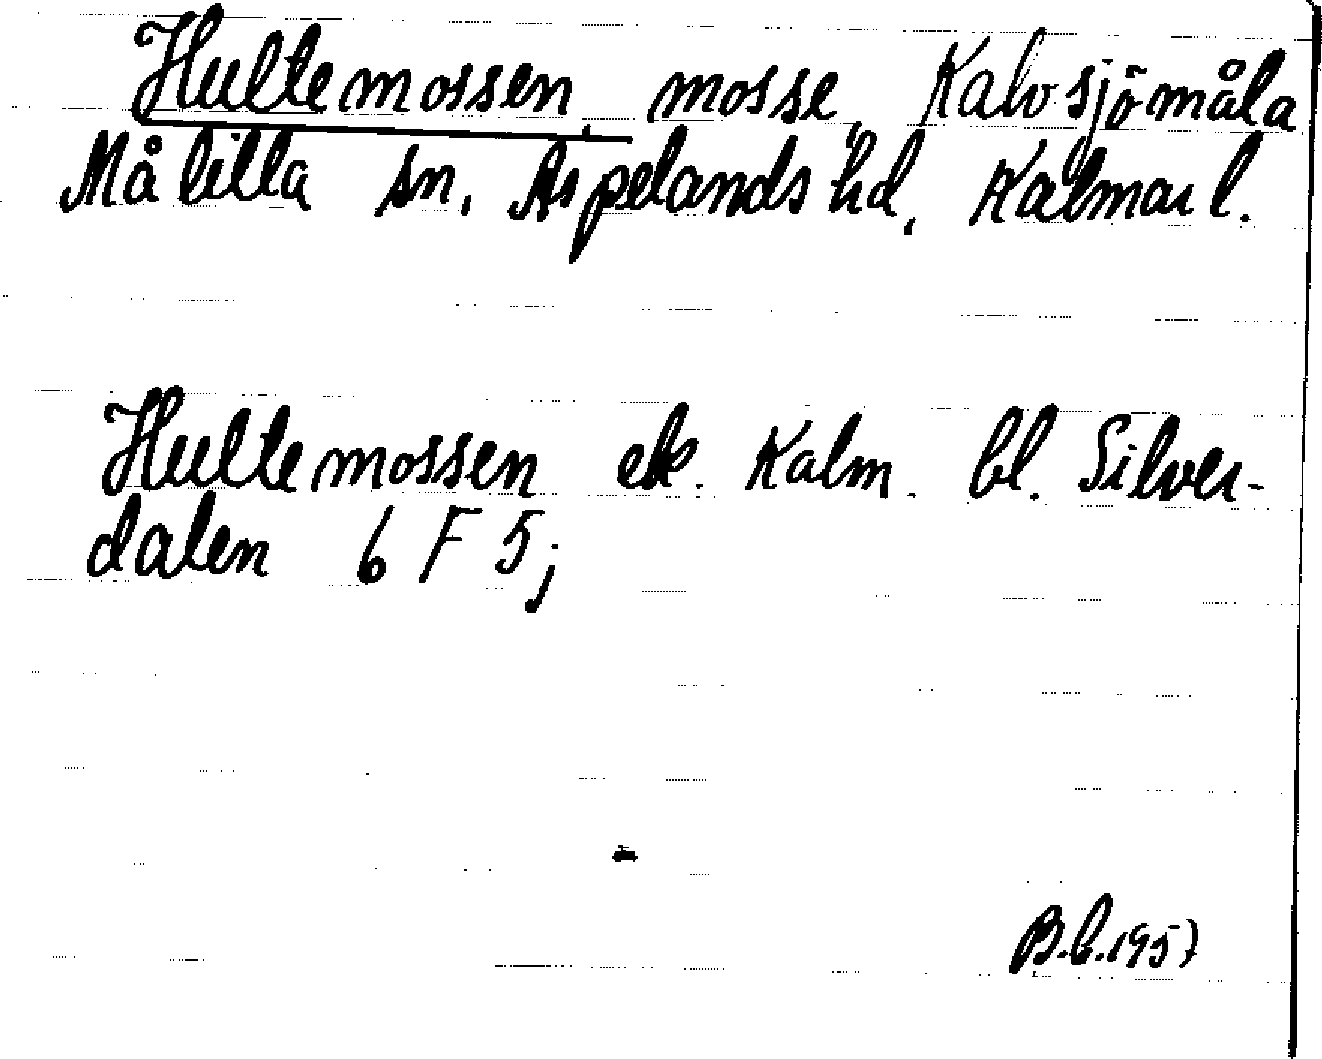 Hultemossen, mosse, Kalvsjömåla
Målilla sn, Aspelands hd, Kalmar l.
Hultemossen ek. Kalm. bl. Silver-
dalen 6 F 5j
B.L.1957